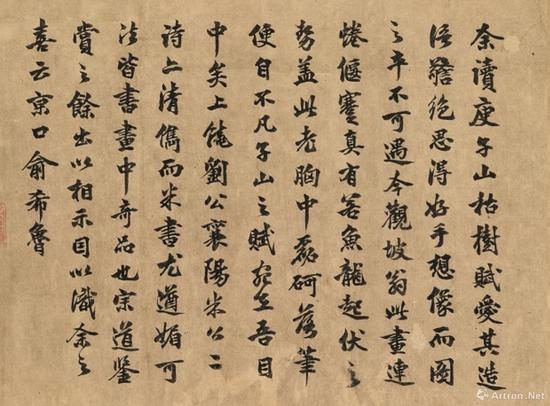 余讀庾子山枯樹賦愛其造
語警絕思得好手想像而圖
之卒不可遇今觀坡翁此畫連
蜷偃蹇真有若魚龍起伏之
勢蓋此老胸中磊砢落筆
便自不凡子山之賦宛在吾目
中矣上饒劉公襄陽米公二
詩清儁而米書尤遒媚可
法皆書畫中奇品也宗道鑒
賞之餘出以相示因以識余之
喜云京口俞希魯
Artron.Net